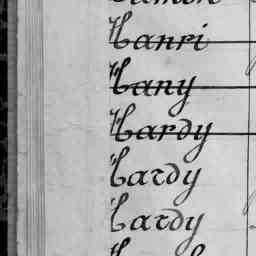 Hanri
Hany
Hardy
Hardy
Hardy